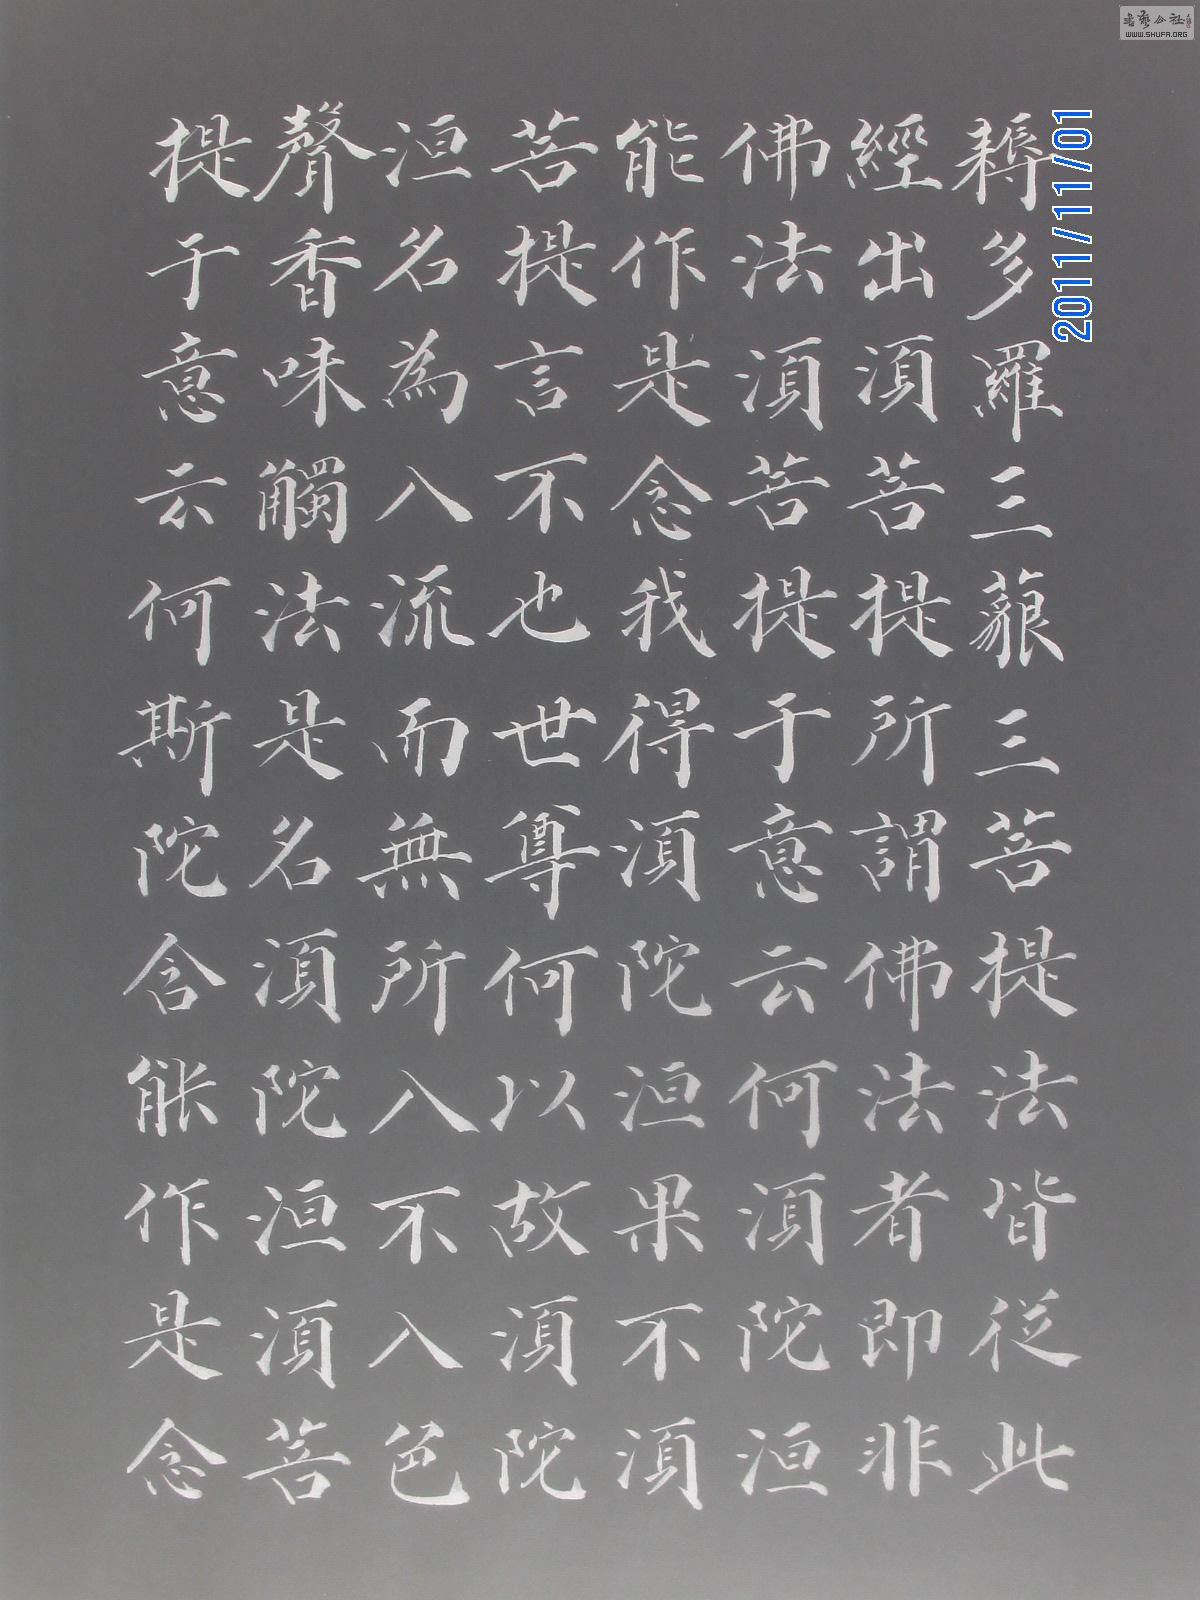 耨多羅三藐三菩提法皆従此
經出湏菩提所謂佛法者即非
佛法湏菩提于意云何湏陀洹
能作是念我得湏陀洹果不湏
菩提言不也世尊何以故湏陀
洹名為入流而無所入不入色
聲香味觸法是名湏陀洹湏菩
提于意云何斯陀含能作是念
2011/11/01
書藝公社
WWW.SHUFA.ORG